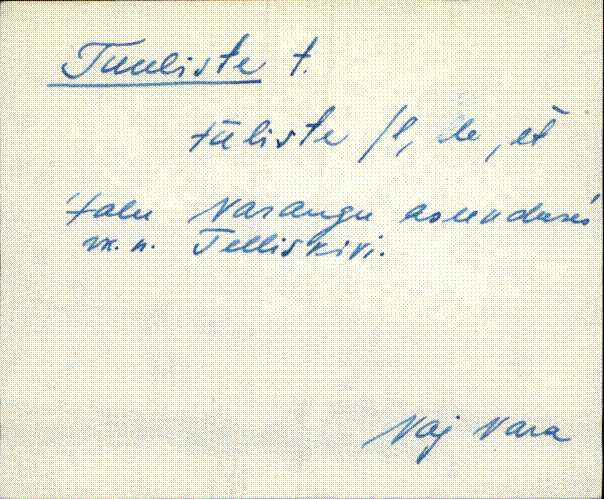 Tuuliste t.
tūliste /l, le, èt
talu Varangu asunduses
vx. n. Telliskivi.
Vaj Vara